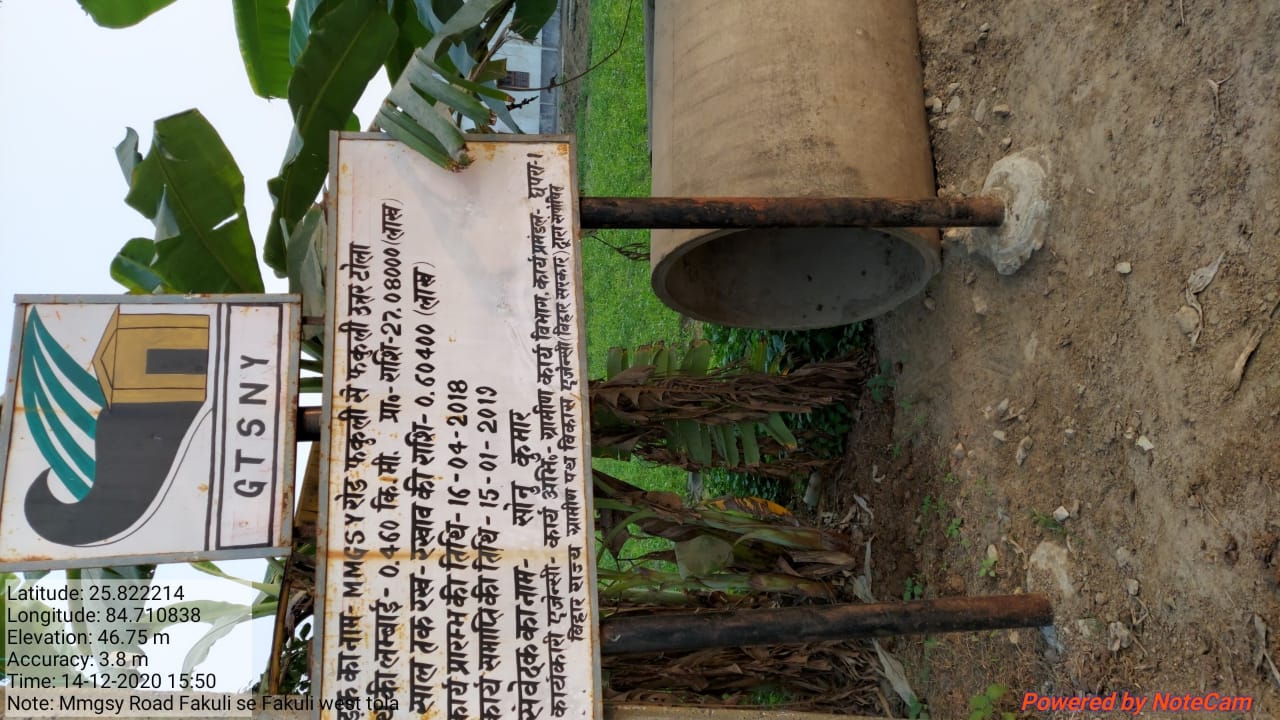 GTSNY
ड़क का नाम- MMGSY रोड फकुली से फकुली उत्तर टोला
की लम्बाई- 0.460 कि.मी. प्रा०-राशि-27.08000(लाख)
साल तक रख-रखाव की राशि- 0.60400 (लाख)
कार्य प्रारम्भ की तिथि- 16-04-2018
कार्य समाप्ति की तिथि- 15-01-2019
संवेदक का नाम- सोनु कुमार
कार्यकारी एजेन्सी- कार्य अभि०- ग्रामीण कार्य विभाग, कार्य प्रमंडल- छपरा-1
बिहार राज्य ग्रामीण पथ विकास एजेन्सी (बिहार सरकार) द्वारा
Latitude: 25.822214
Longitude: 84.710838
Elevation: 46.75 m
Accuracy: 3.8 m
Time: 14-12-2020 15:50
Note: Mmgsy Road Fakuli se Fakuli west tola
Powered by NoteCam